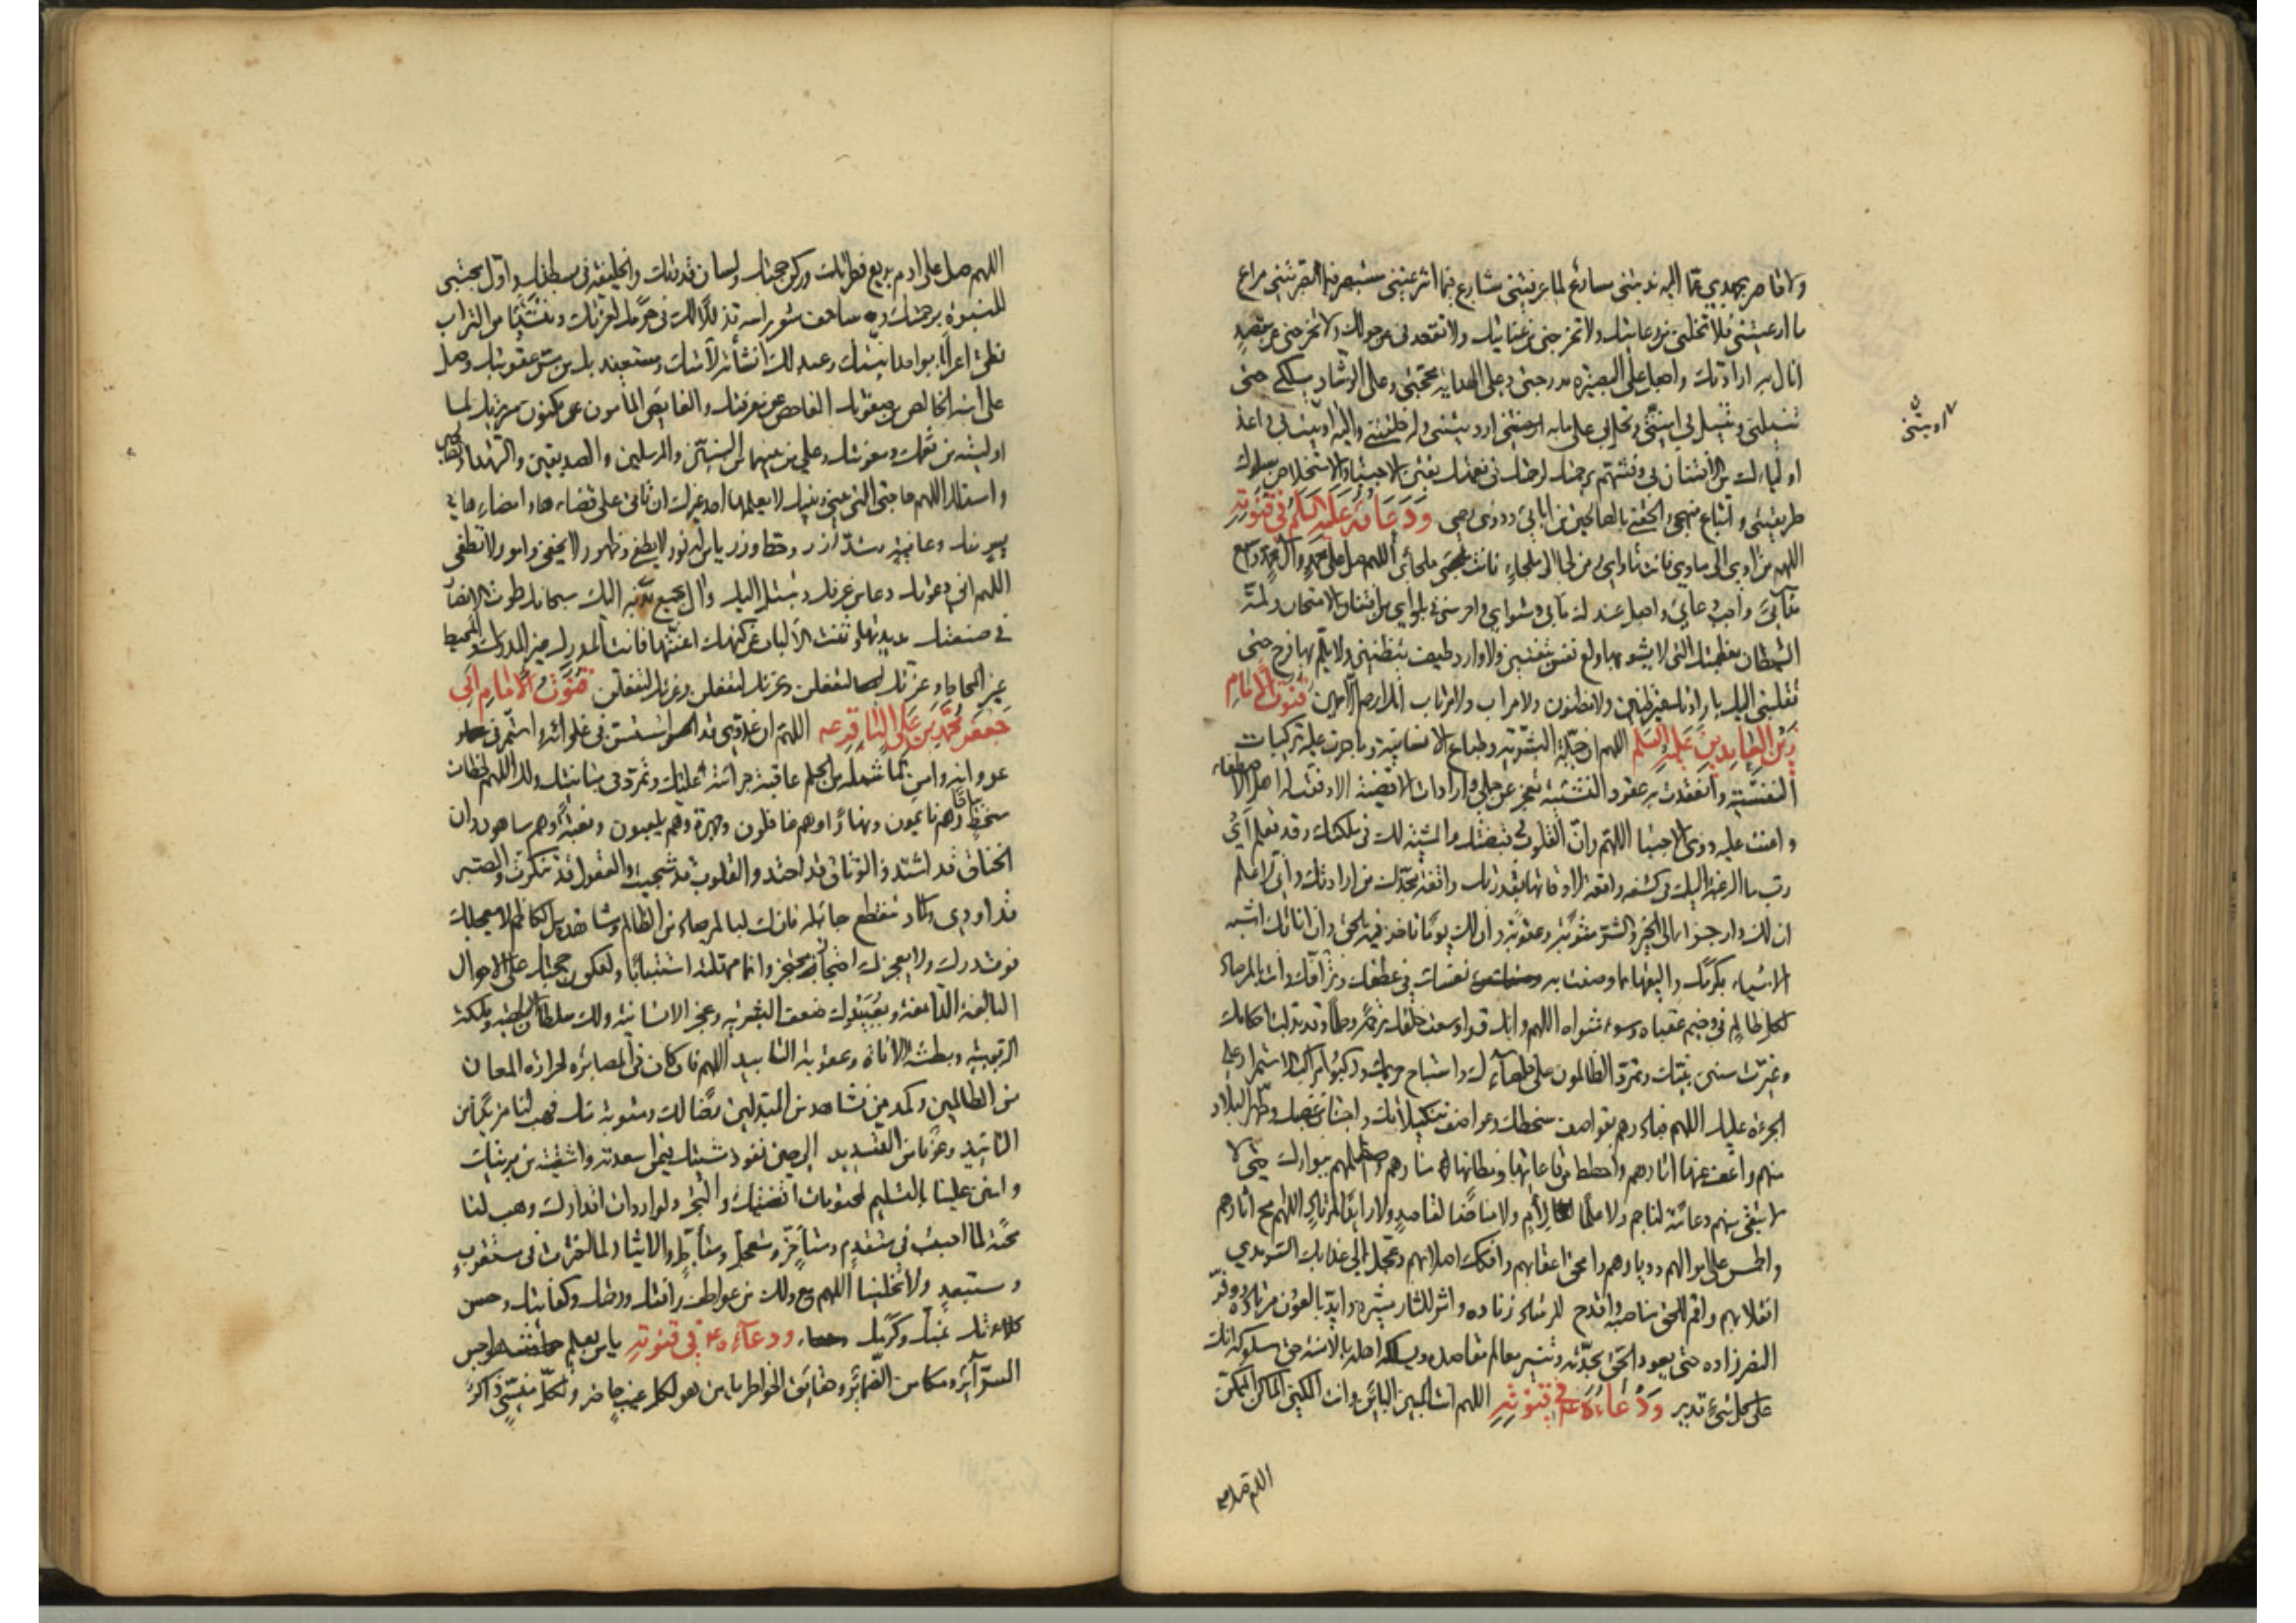 ولا قاصر بجهدي عما اليه ندبتني مسارع لما عرفتني شارع فيما اشرعتني مستبصر فيما بصرتني مراع
ما ارعيتني فلا تخلني من رعايتك ولا تخرجني من عنايتك ولا تقعدني عن حولك ولا تخرجني عن مقصد
انال به ارادتك واجعل على البصيرة مدرجتي وعلى الهداية محجتي وعلى الرشاد مسلكي حتى
تنيلني وتنيل بي امنيتي وتحل بي على ما به اردتني وله خلقتني واليه اويت بي واعذ
اوليائك من الافتتان بي وفتنهم برحمتك لرحمتك في نعمتك تفتين الاجتباء والاستخلاص بسلوك
طريقتي واتباع منهجي والحقني بالصالحين من ابائي وذوي رحمي ودعا عليه السلم في قنوته
اللهم من اوى الى ماوى فانت ماواي ومن لجأ الى ملجاء فانت ملجائي اللهم صل على محمد وآل محمد واسمع
ندائي واجب دعائي واجعل عندك مآبي ومثواي واحرسني في بلواي من افتتان الامتحان ولمة
الشيطان بعظمتك التي لا يشوبها ولع نفس بتفتين ولا وارد طيف بتظنين ولا يلم بها فرح حتى
تقلبني اليك بارادتك غير ظنين ولا مظنون ولا مراب ولا مرتاب انك ارحم الراحمين قنوت الامام
زين العابدين عليه السلم اللهم ان جبلة البشرية وطباع الانسانية وما جرت عليه تركيبات
النفسية وانعقدت به عقود النشئية تعجز عن حمل واردات الاقضية الا ما وفقت له اهل الاصطفاء
واعنت عليه ذوي الاجتباء اللهم وان القلوب في قبضتك والمشية لك في ملكتك وقد تعلم اي
رب ما الرغبة اليك في كشفه واقعة لاوقاتها بقدرتك واقفة بحدك من ارادتك واني لاعلم
ان لك دار جزاء من الخير والشر مثوبة وعقوبة وان لك يوما تاخذ فيه بالحق وان اناتك اشبه
الاشياء بكرمك واليقها بما وصفت به نفسك في عطفك وترآفك وانت بالمرصاد
لكل ظالم في وخيم عقباه وسوء مثواه اللهم وانك قد اوسعت خلقك رحمة وحلما وقد بدلت احكامك
وغيرت سنن نبيك وتمرد الظالمون على خلصائك واستباحوا حريمك وركبوا مراكب الاستمرار على
الجرءة عليك اللهم فبادرهم بقواصف سخطك وعواصف تنكيلاتك واجتثاث غضبك وطهر البلاد
منهم واعف عنها اثارهم واحطط من قاعاتها ومظانها منارهم واصطلمهم ببوارك حتى لا
تبقي منهم دعامة لناجم ولا علما لآم ولا مناصا لقاصد ولا رائدا لمرتاد اللهم امح اثارهم
واطمس على اموالهم وديارهم وامحق اعقابهم وافكك اصلابهم وعجل الى عذابك السرمدي
انقلابهم واقم للحق مناصبه واقدح للرشاد زناده واثر للثار مثيره وايد بالعون مرتاده ووفر
النصر زاده حتى يعود الحق بجدته وتنير معالم مقاصده ويسلكه اهله بالامنة حق سلوكه انك
على كل شئ قدير ودعاءه في قنوته اللهم انت المبين البائن وانت المكين الماكن الممكن
اللهم صل
اللهم صل على ادم بديع فطرتك وركن حجتك ولسان قدرتك والخليفة في بسيطتك واول مجتبى
للنبوة برحمتك وساحف شعر راسه تذللا لك في حرمك لعزتك ومنشئا من التراب
نطق اعرابا بوحدانيتك وعبد لك انشأته لامتك ومستعيذ بك من مس عقوبتك وصل
على ابنه الخالص من صفوتك الفاحص عن معرفتك والغايص المأمون عن مكنون سريرتك بما
اوليته من نعمك ومعونتك وعلى من بينهما من النبيين والمرسلين والصديقين والشهداء والصالحين
واسئلك اللهم حاجتي التي بيني وبينك لا يعلمها احد غيرك ان تاتي على قضاءها وامضاءها في
يسر منك وعافية وشد ازر وحط وزر يا من له نور لا يطفى وظهور لا يخفى وامور لا تكفى
اللهم اني دعوتك دعاء من عرفك وتبتل اليك وآل بجميع بدنه اليك سبحانك طوت الابصار
في صنعتك مديدتها وثنت الالباب عن كنهك اعنتها فانت المدرك غير المدرك والمحيط
غير المحاط وعزتك لتفعلن وعزتك لتفعلن وعزتك لتفعلن قنوت الامام ابي
جعفر محمد بن علي الباقر عه اللهم ان عدوي قد استسن في غلوائه واستمر في
عدوانه وامن بما شمله من الحلم عاقبة جرأته عليك وتمرد في مباينتك ولك اللهم لحظات
سخط بياتا وهم نايمون ونهارا وهم غافلون وجهرة وهم يلعبون وبغتة وهم ساهون وان
الخناق قد اشتد والوثاق قد احتد والقلوب قد شجيت والعقول قد تنكرت والصبر
قد اودى وكاد تنقطع حبائله فانك لبالمرصاد من الظالم ومشاهدة من الكاظم لا يعجلك
فوت درك ولا يعجزك احتجاز محتجز وانما مهلته استثباتا ولك حجتك على الاحوال
البالغة الدامغة وبعبيدك ضعف البشرية وعجز الانسانية ولك سلطان الالهية وملكة
الربوبية وبطشة الاناة وعقوبة التابيد اللهم فان كان في المصابرة لحرارة المعان
من الظالمين وكمد من نشاهد من المبدلين رضا لك ومثوبة منك فهب لنا مزيدا من
التاييد وعونا من التسديد الى حين نفوذ مشيتك فيمن اسعدته واشقيته من بريتك
وامنن علينا بالتسليم لمحتومات اقضيتك والتجرد لواردات اقدارك وهب لنا
محبة لما احببت في متقدم ومتأخر ومتعجل ومتأجل والايثار لما اخترت في مستقرب
ومستبعد ولا تخلنا اللهم مع ذلك من عواطف رأفتك ورحمتك وكفايتك وحسن
كلاءتك بمنك وكرمك ودعاءه في قنوته يا من يعلم هواجس
السرآئر ومكامن الضمائر وحقايق الخواطر يا من هو لكل غيب حاضر ولكل منسي ذاكر